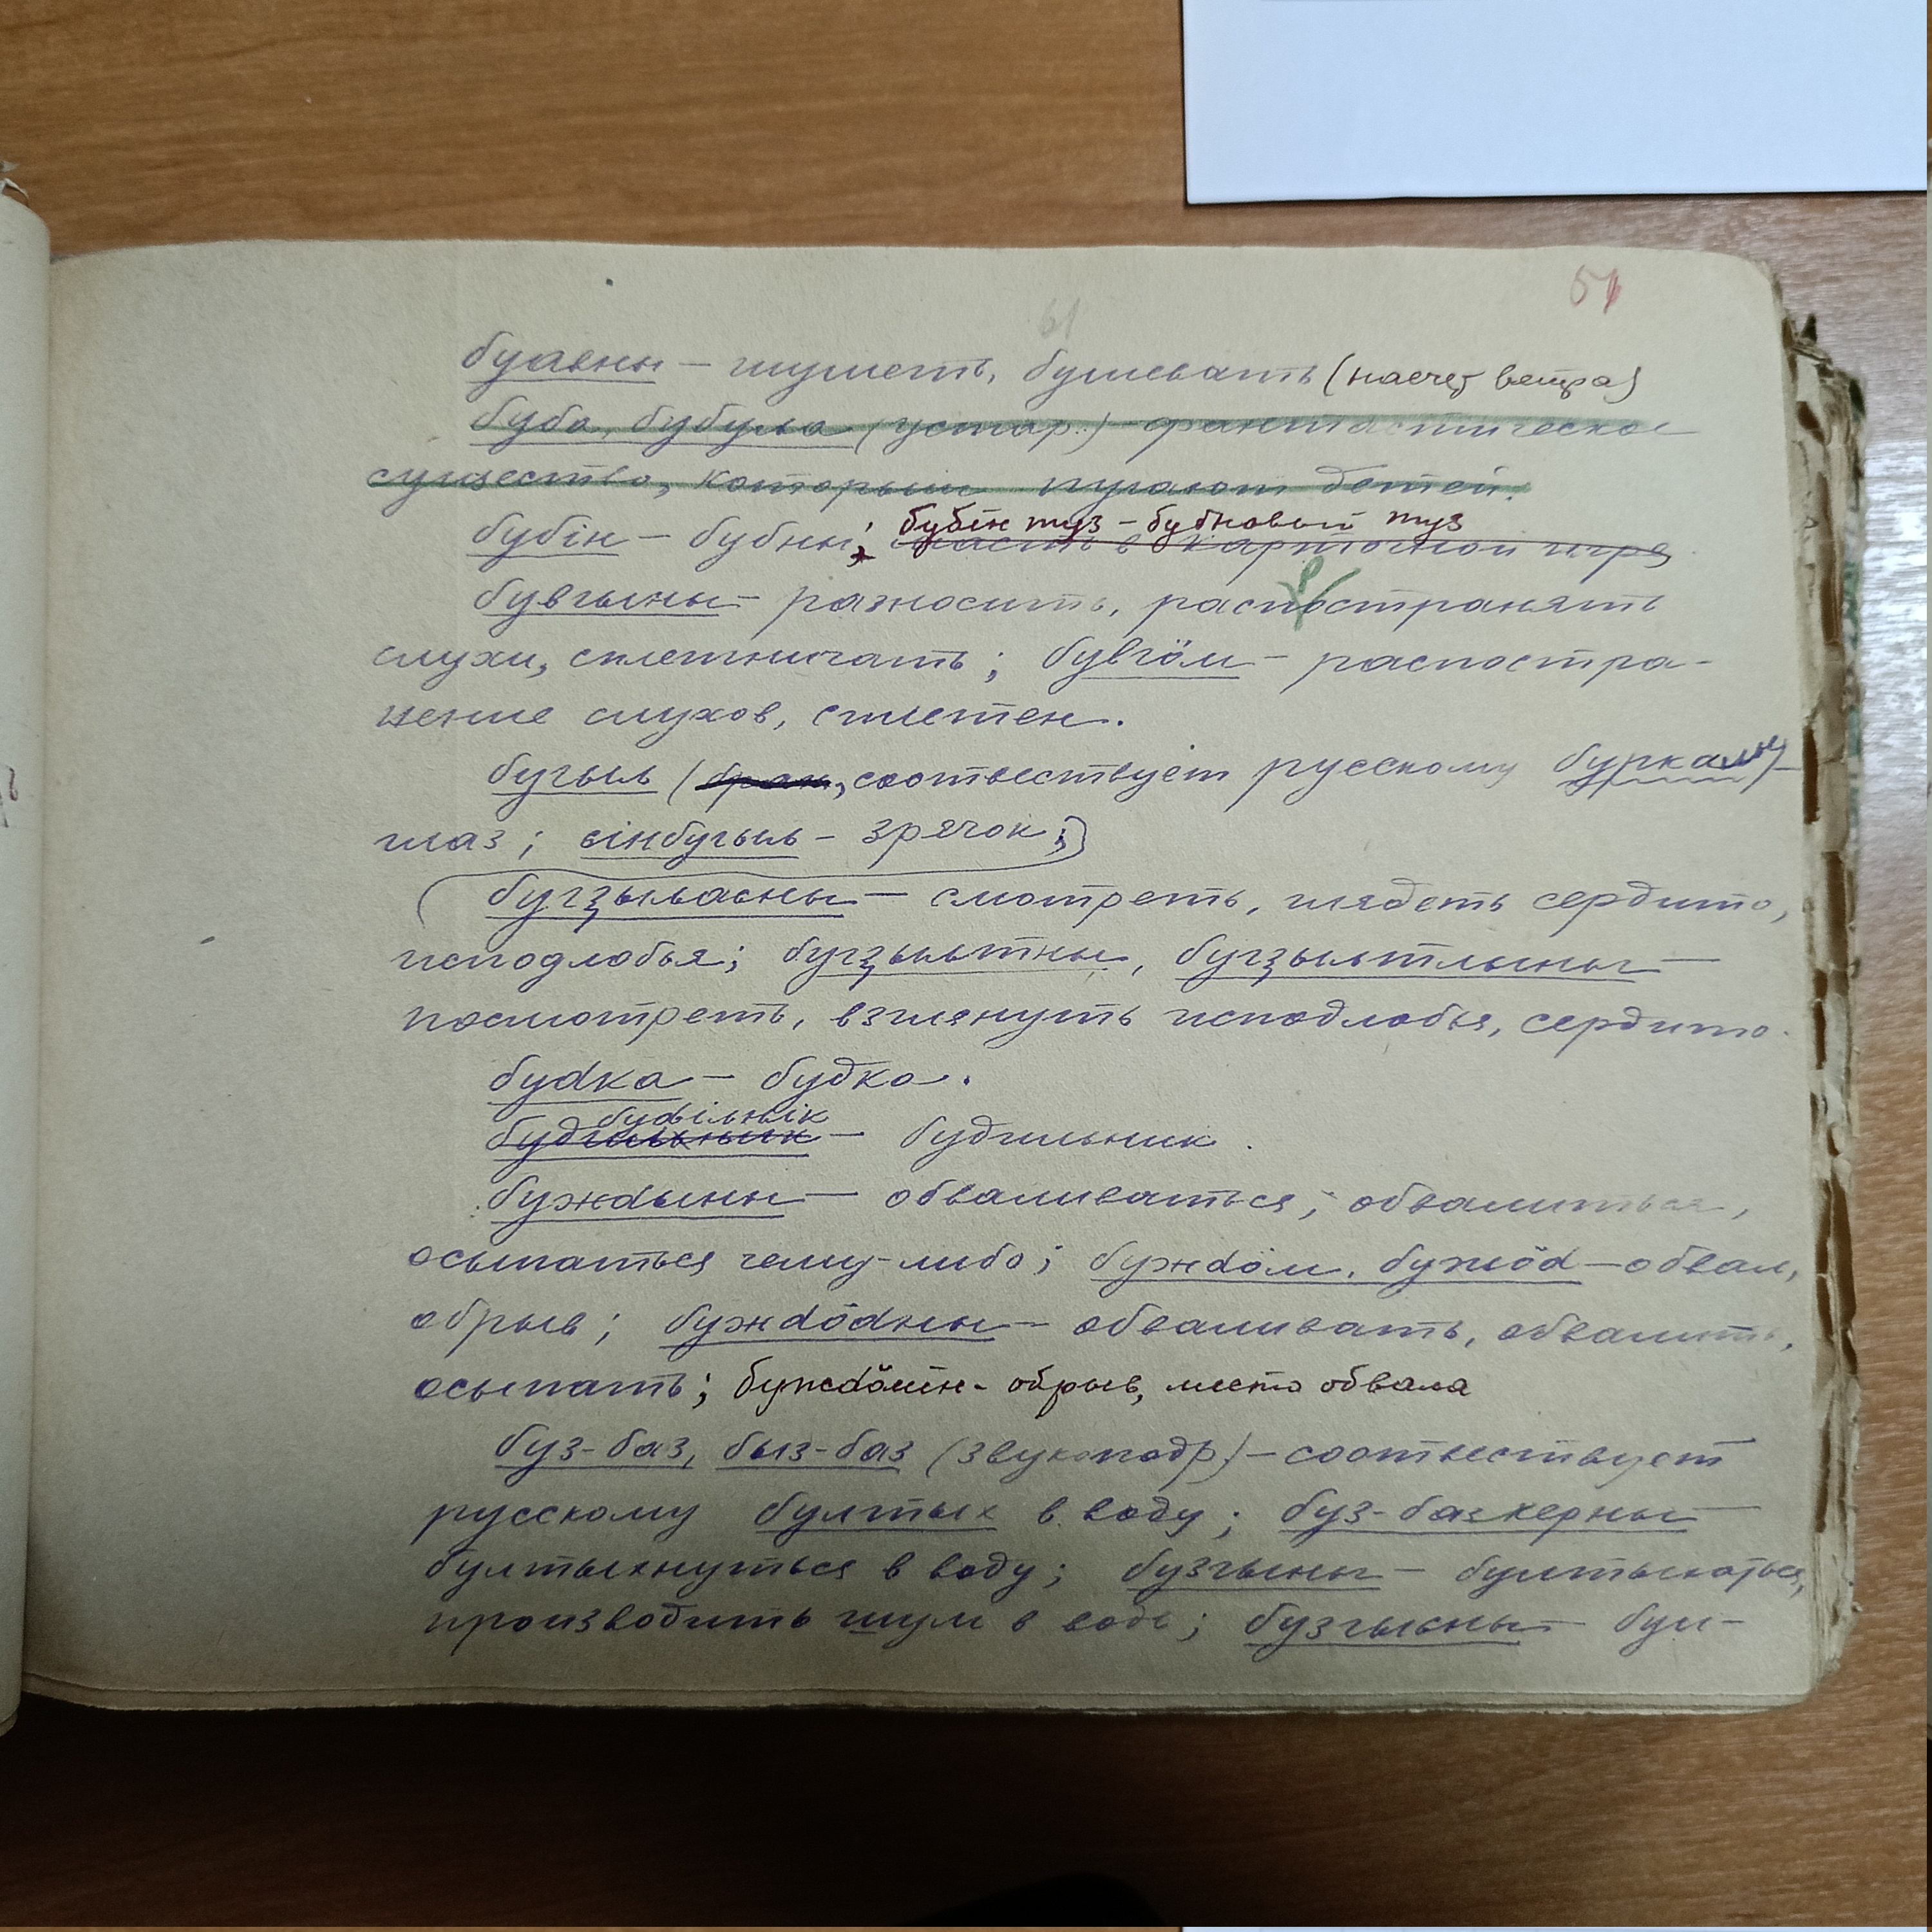 51
61
буавны — шуметь, бушевать (насчет ветра)
буба, бубула (устар.) — фантастическое
существо, которым пугают детей.
бубін туз – бубновый туз
бубін — бубны; масть в карточной игре
бувгыны — разносить, распостранять
слухи, сплетничать; бувгӧм — распостра-
нение слухов, сплетен.
бугыль (соответствует русскому буркалы) —
глаз; сінбугыль — зрачок;
бугԅыльасны — смотреть, глядеть сердито,
исподлобья; бугԅыльтны, бугԅыльтлыны —
посмотреть, взглянуть исподлобья, сердито.
буdка — будка.
буdільнік
будильник — будильник.
бужdыны — обваливаться; обвалиться,
осыпаться чему-либо; бужdӧм, бужӧd — обвал,
обрыв; бужdӧdны — обваливать, обвалить,
осыпать; бужdӧмін - обрыв, место обвала
буз-баз, быз-баз (звукоподр.) — соответствует
русскому бултых в воду; буз-базкерны —
бултыхнуться в воду; бузгыны — бултыхаться,
производить шум в воде; бузгысны — бул-